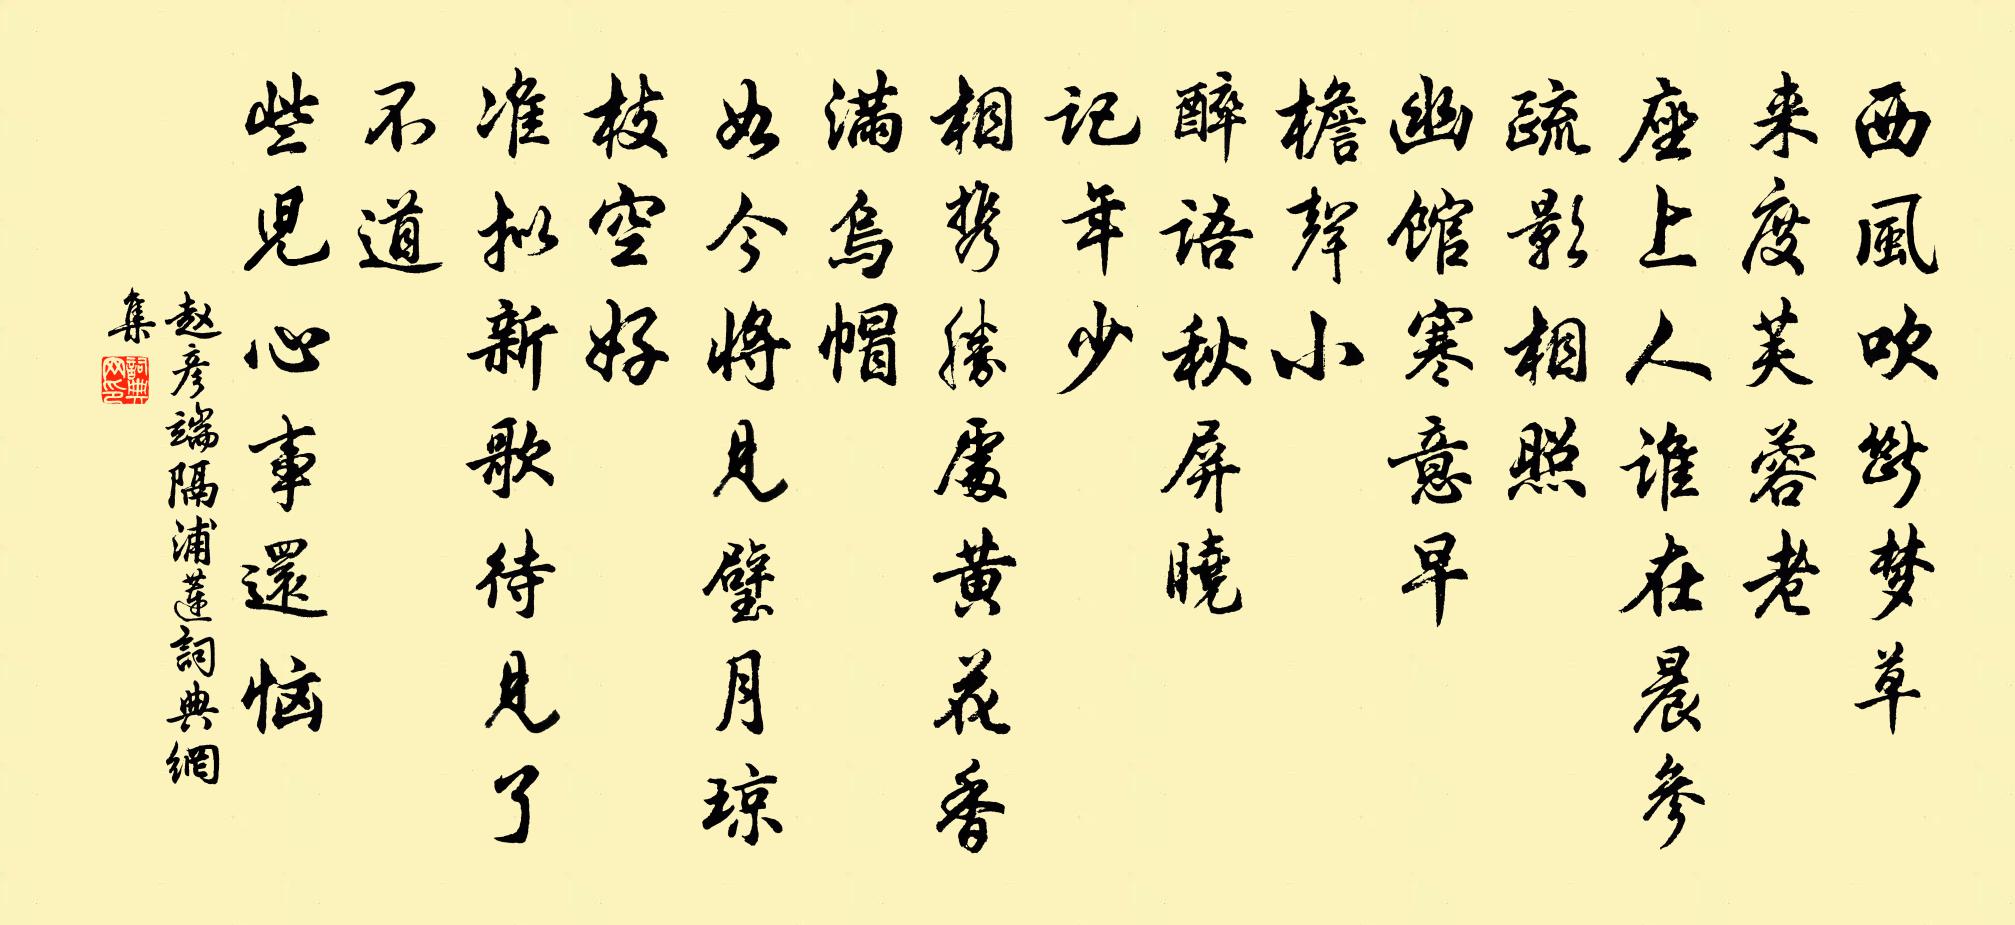 西風吹斷梦草
来度芙蓉老
座上人誰在晨參
疏影相照
幽館寒意早
檐聲小
醉語秋屏曉
記年少
相携勝處黄花香
滿烏帽
如今將見璧月琼
枝空好
准拟新歌待見了
不道
些兒心事還惱
赵彦端隔浦蓮詞典網
集
詞典